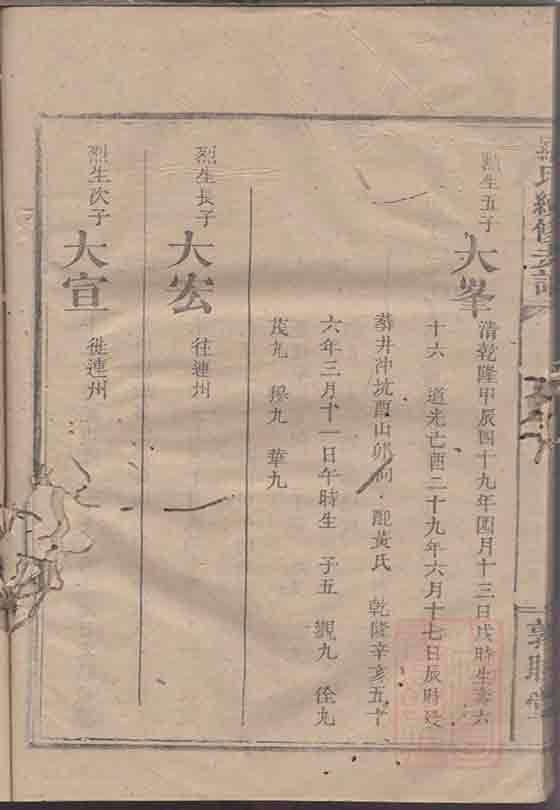 氏續修支譜
烈生五子 大峯
清乾隆甲辰四十九年四月十三日戌時生壽六
十六 道光亡酉二十九年六月十七日辰時歿
葬井沖坑酉山卯向·配黃氏 乾隆辛亥五十
六年三月十一日午時生 子五 觀九 徐九
茂九 操九 華九
烈生長子 大宏 往連州
烈生次子 大宣 徙連州
敦睦堂